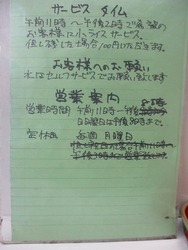 サービス タイム
午前11時～午後2時で希望の
お客様に小ライス サービス。
但し残した場合100円いただきます。
お客様へのお願い
水はセルフサービスでお願い致します
営業案内
営業時間 午前11時～午後8時
日曜日は午後
定休日 毎週 月曜日